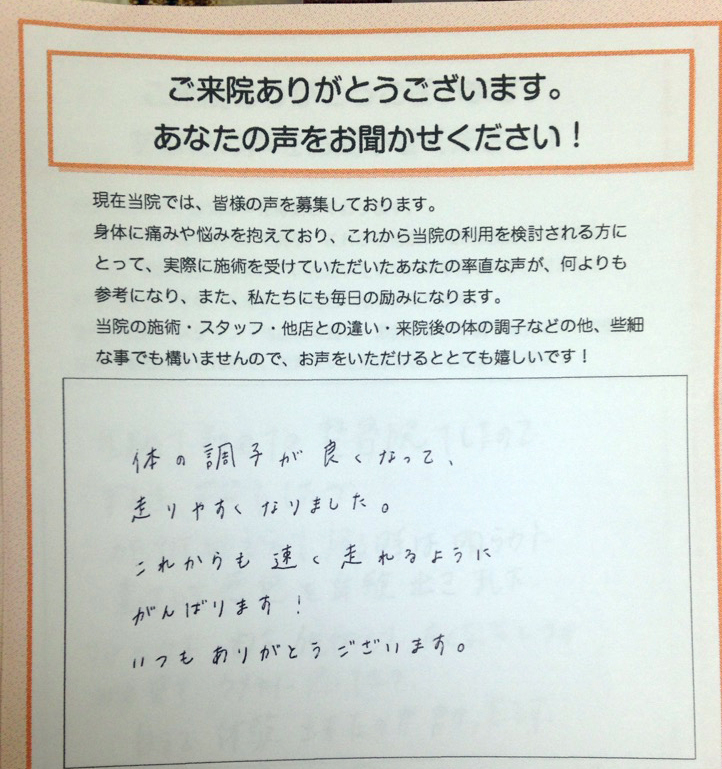 ご来院ありがとうございます。
あなたの声をお聞かせください！
現在当院では、皆様の声を募集しております。
身体に痛みや悩みを抱えており、これから当院の利用を検討される方に
とって、実際に施術を受けていただいたあなたの率直な声が、何よりも
参考になり、また、私たちにも毎日の励みになります。
当院の施術・スタッフ・他店との違い・来院後の体の調子などの他、些細
な事でも構いませんので、お声をいただけるととても嬉しいです！
体の調子が良くなって、
走りやすくなりました。
これからも速く走れるように
がんばります！
いつもありがとうございます。